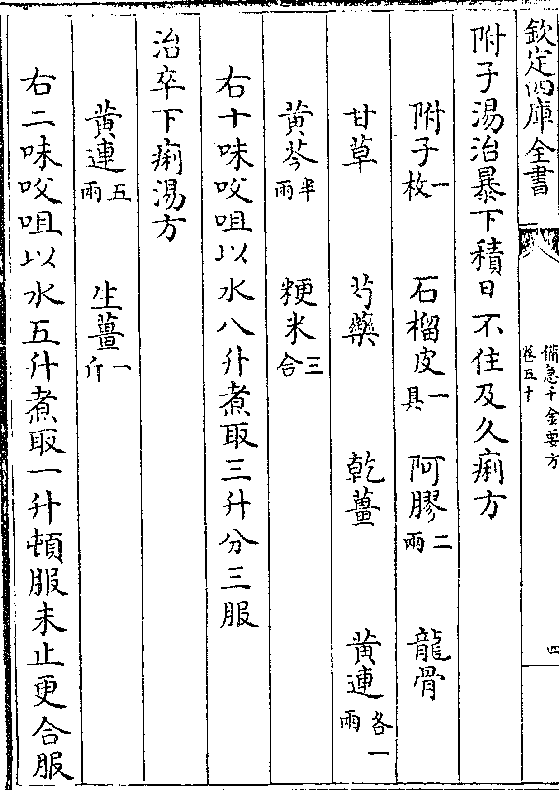 欽定四庫全書
備急千金要方
卷五十
四
附子湯治暴下積日不住及久痢方
附子一枚 石榴皮一具 阿膠二兩 龍骨
甘草 芍藥 乾薑 黄連各一兩
黄芩半兩 粳米三合
右十味㕮咀以水八升煮取三升分三服
治卒下痢湯方
黄連五兩 生薑一斤
右二味㕮咀以水五升煮取一升頓服未止更合服